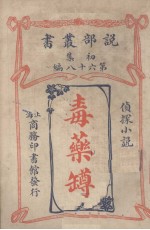 說部叢書
初集
第六十八編
偵探小說
毒藥罇
上海商務印書館發行